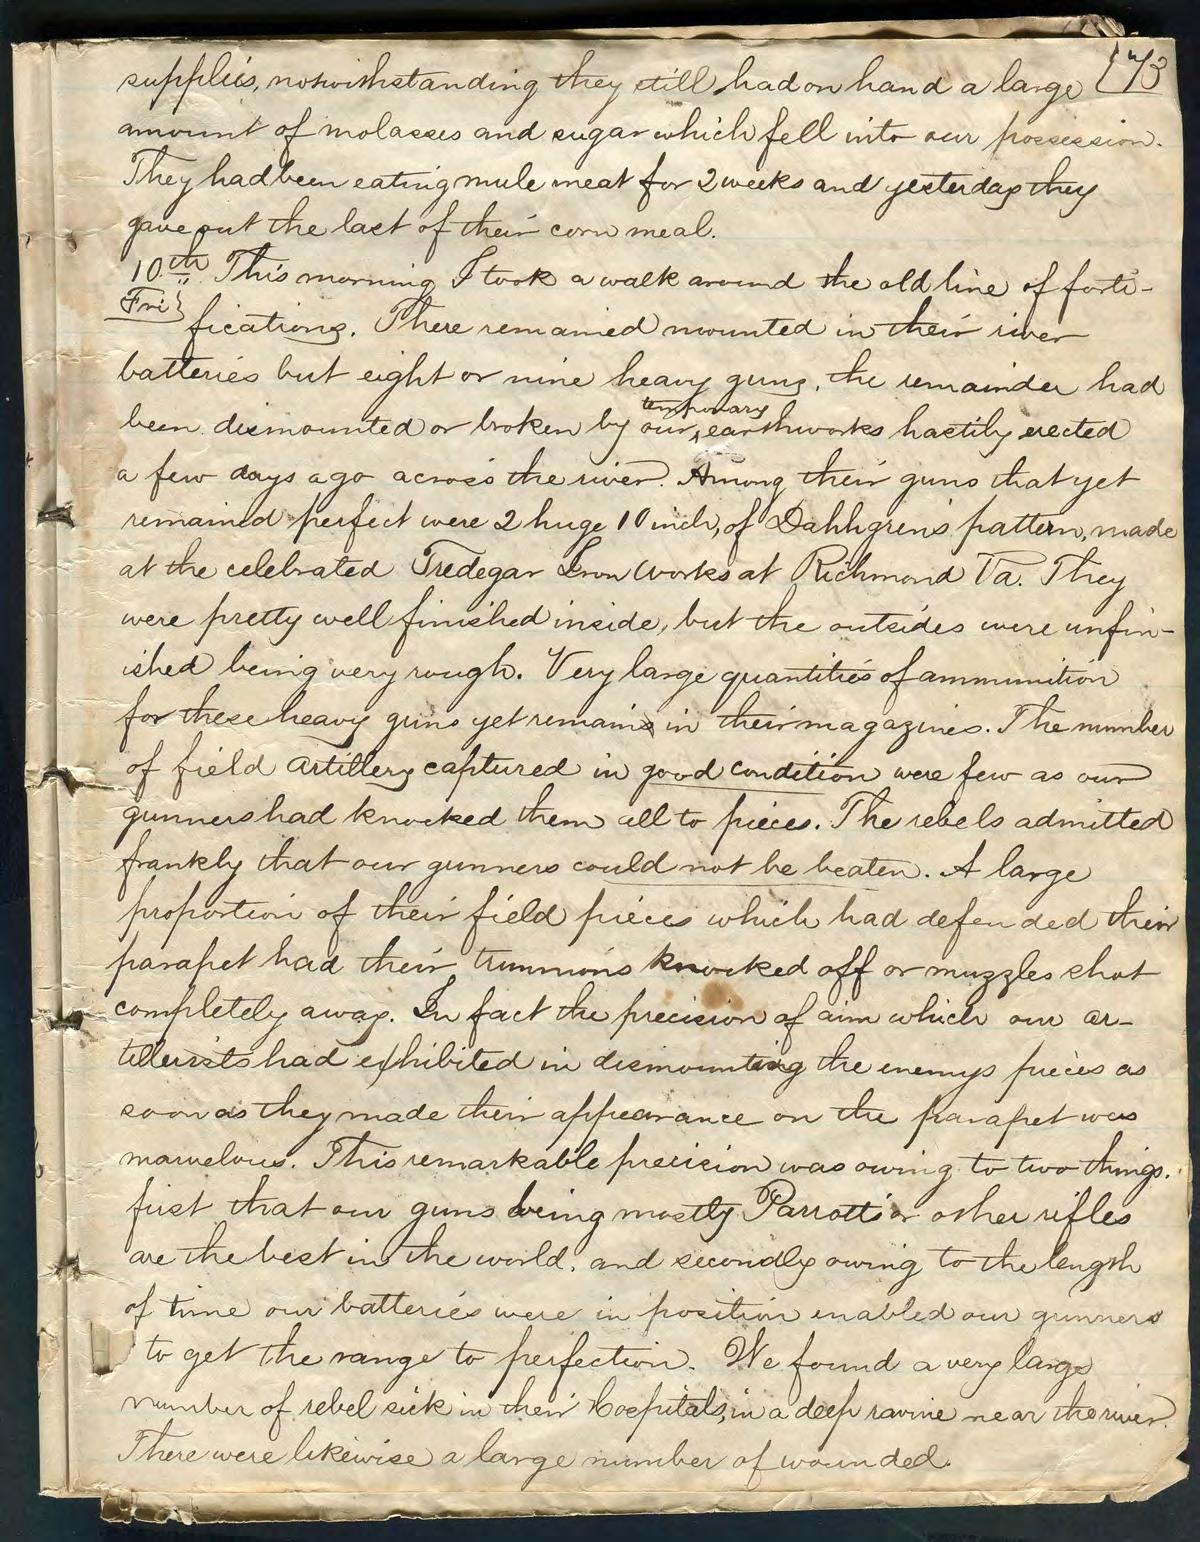 173
supplies, notwithstanding they still had on hand a large
amount of molasses and sugar which fell into our possession.
They had been eating mule meat for 2 weeks and yesterday they
gave out the last of their corn meal.
10th This morning I took a walk around the old line of forti-
Fri} fications. There remained mounted in their river
batteries but eight or nine heavy guns, the remainder had
temporary
been dismounted or broken by our earthworks hastily erected
a few days ago across the river. Among their guns that yet
remained perfect were 2 huge 10 inch, of Dahhgren's pattern, made
at the celebrated Tredegar Iron Works at Richmond Va. They
were pretty well finished inside, but the outsides were unfin-
ished being very rough. Very large quantities of ammunition
for these heavy guns yet remains in their magazines. The number
of field artillery captured in good condition were few as our
gunners had knocked them all to pieces. The rebels admitted
frankly that our gunners could not be beaten. A large
proportion of their field pieces which had defended their
parapet had their trunnions knocked off or muzzles shot
completely away. In fact the precision of aim which our ar-
tillerists had exhibited in dismounting the enemys pieces as
soon as they made their appearance on the parapet was
marvelous. This remarkable precision was owing to two things.
first that our guns being mostly Parrotts or other rifles
are the best in the world, and secondly owing to the length
of time our batteries were in position enabled our gunners
to get the range to perfection. We found a very large
number of rebel sick in their hospitals, in a deep ravine near the river.
There were likewise a large number of wounded.